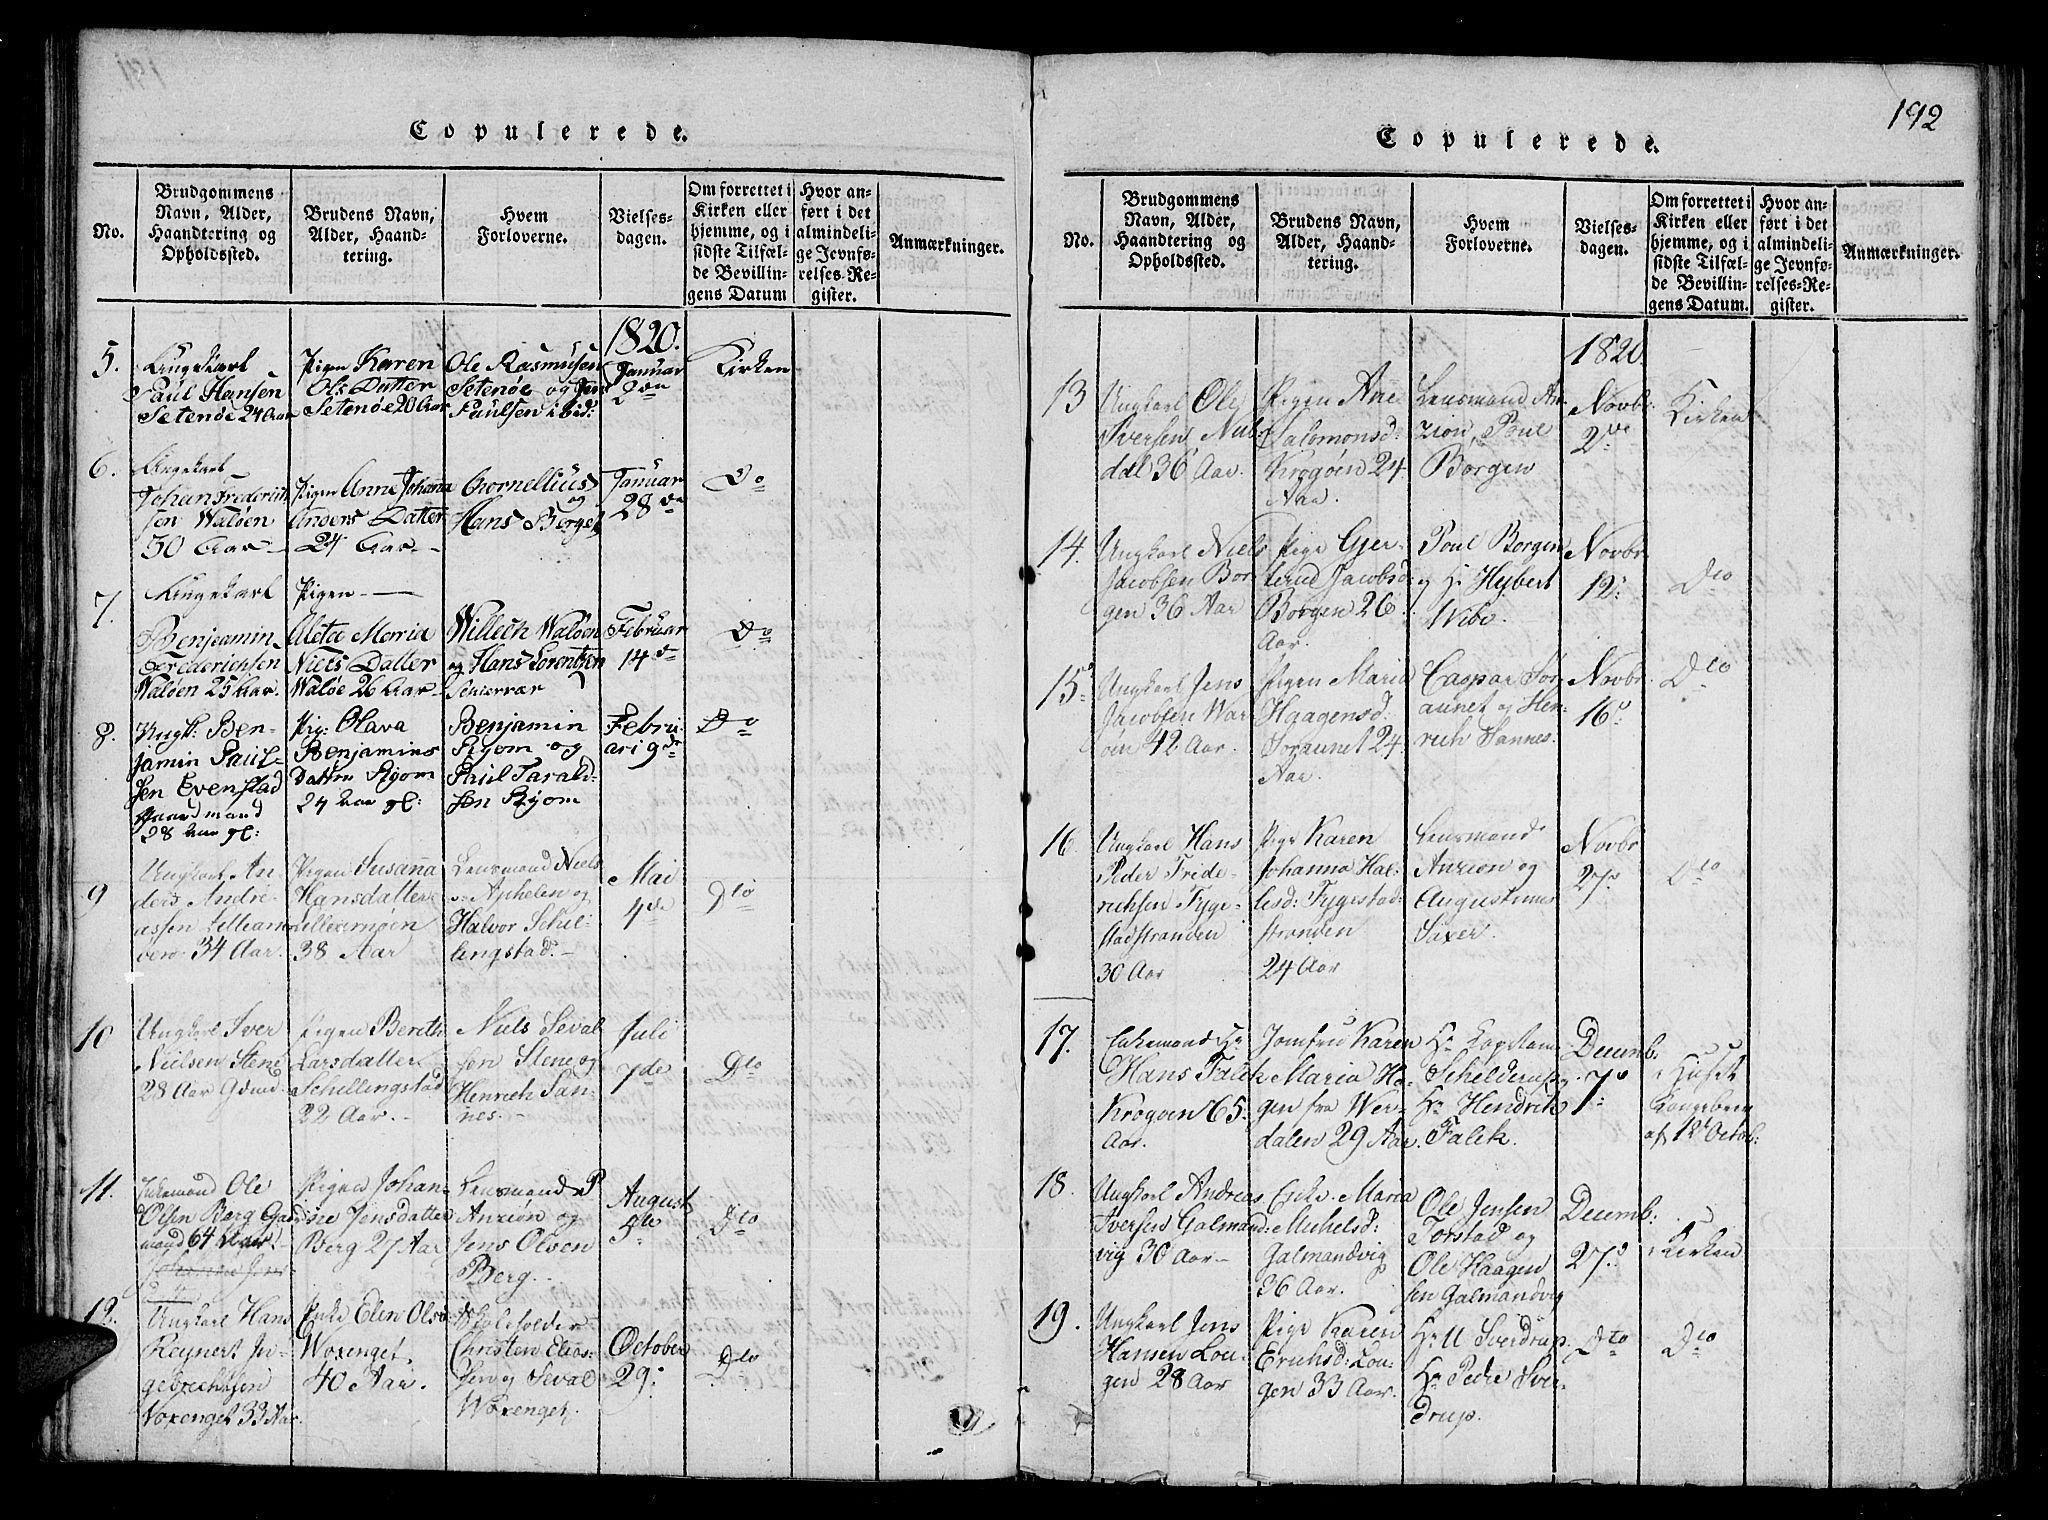 192
Copulerede.
No.
Brudgommens
Navn, Alder,
Haandtering og
Opholdssted.
Brudens Navn,
Alder, Haand-
tering.
Hvem
Forloverne.
Vielses-
dagen.
Om forrettet i
Kirken eller
hjemme, og i
sidste Tilfæl-
de Bevillin-
gens Datum
Hvor an-
ført i det
almindeli-
ge Jevnfø-
relses-Re-
gister.
Anmærkninger.
1820.
5.
Ungekarl
Paul Hansen
Setenøe 24 Aar
Pigen Karen
Ols Datter
Setenøe 20 Aar
Ole Rasmusen
Setenøe og Jens
Paulsen ibid:
Januar
2den
Kirken
6.
Ungekarl
Johan Frederich
sen Waløen
30 Aar
Pigen Anne Johana
Anders Datter
24 Aar
Cornellius
og
Hans Borgen
Januar
28de
Do
7.
Ungekarl
Benjeamin
Frederichsen
Waløen 25 Aar
Pigen
Aletae Marria
Niels Datter
Waløe 26 Aar
Willech Waløen
og Hans Lorentzen
Februar
14de
Do
8.
Ungk: Ben-
jamin Paul-
sen Evenstad
Gaardmand
28 Aar gl:
Pig: Olava
Benjamins
Datter Ryom
24 Aar gl:
Benjamin
Ryom og
Paul Tarald-
sen Ryom
Febru
ari 9de
Do
9
Ungkarl An
ders Andre-
assen
34 Aar.
Pigen Susanna
Hansdatter
38 Aar
Lensmand Niels
Aphelen og
Halvor Schil-
lingstad.
Mai
4de
Dto
10
Ungkarl Iver
Nielsen Stene
28 Aar Gdmd
Pigen Bereth
Larsdatter
Schillingstad
22 Aar.
Niels Seval
sen Stene og
Henrich San-
nes.
Juli
7de
Dto
11.
Enkemand Ole
Olsen Berg Gaard
mand 64 Aar
Johanna Jens
Pigen Johan-
ne Jensdatter
Berg 27 Aar
Lensmand P
Anzion og
Jens Olsen
Berg.
August
5te
Dto
12.
Ungkarl Hans
Reynert In-
gebrechtsen
Woxenget 33 Aar.
Enke Elen Olsd
Woxenget.
40 Aar.
Skoleholder
Christen Elias-
sen og Seval
Woxenget.
October
29:
Dto
Copulerede.
No.
Brudgommens
Navn, Alder,
Haandtering og
Opholdssted.
Brudens Navn,
Alder, Haand-
tering.
Hvem
Forloverne.
Vielses-
dagen.
Om forrettet i
Kirken eller
hjemme, og i
sidste Tilfæl-
de Bevillin-
gens Datum.
Hvor an-
ført i det
almindeli-
ge Jevnfø-
relses-Re-
gister.
Anmærkninger.
1820.
13
Ungkarl Ole
Iversen Nub-
dal 36 Aar.
Pigen Ane
Salomonsd:
Krogøen 24
Aar.
Lensmand An-
zion, Poul
Borgen
Novbr.
2de
Kirken
14.
Ungkarl Niels
Jacobsen Bor-
gen 36 Aar
Pige Gjer-
terud Jacobsd:
Borgen 26
Aar.
Poul Borgen
og Hr Hybert
Wibe
Novbr
12:
Dto
15.
Ungkarl Jens
Jacobsen War
øen 42 Aar.
Pigen Maria
Haagensd.
Søraunet 24
Aar.
Caspar Sør
aunet og Hen-
rich Sannes.
Novbr
16.
Dto
16
Ungkarl Hans
Peder Fride-
richsen Tyge-
stadstranden
30 Aar
Pige Karen
Johanna Hal-
lesd: Tygestad
stranden
24 Aar
Lensmand
Anzion og
Augustinus
Saxer.
Novbr
27.
Dto
17.
Enkemand Hr
Hans Falck
Krogøen 65
Aar.
Jomfru Karen
Maria Ha-
gen fra Wer-
dalen 29 Aar
Hr Captain
Schilderup og
Hr Hendrik
Falck.
Decemb:
7:
i Huset
Kongebrev
af 12t Octob:
18.
Ungkarl Andreas
Iversen Galmand-
vig 30 Aar
Enke Maria
Michelsd:
Galmandvig
36 Aar.
Ole Jensen
Torstad og
Ole Haagen
sen Galmandvig
Decemb:
27.
i Kirken
19.
Ungkarl Jens
Hansen Lou-
gen 28 Aar
Pige Karen
Erichsd: Lou-
gen 33 Aar.
Hr U Sverdrup.
Hr Peder Sver-
drup.
Dto
Dto